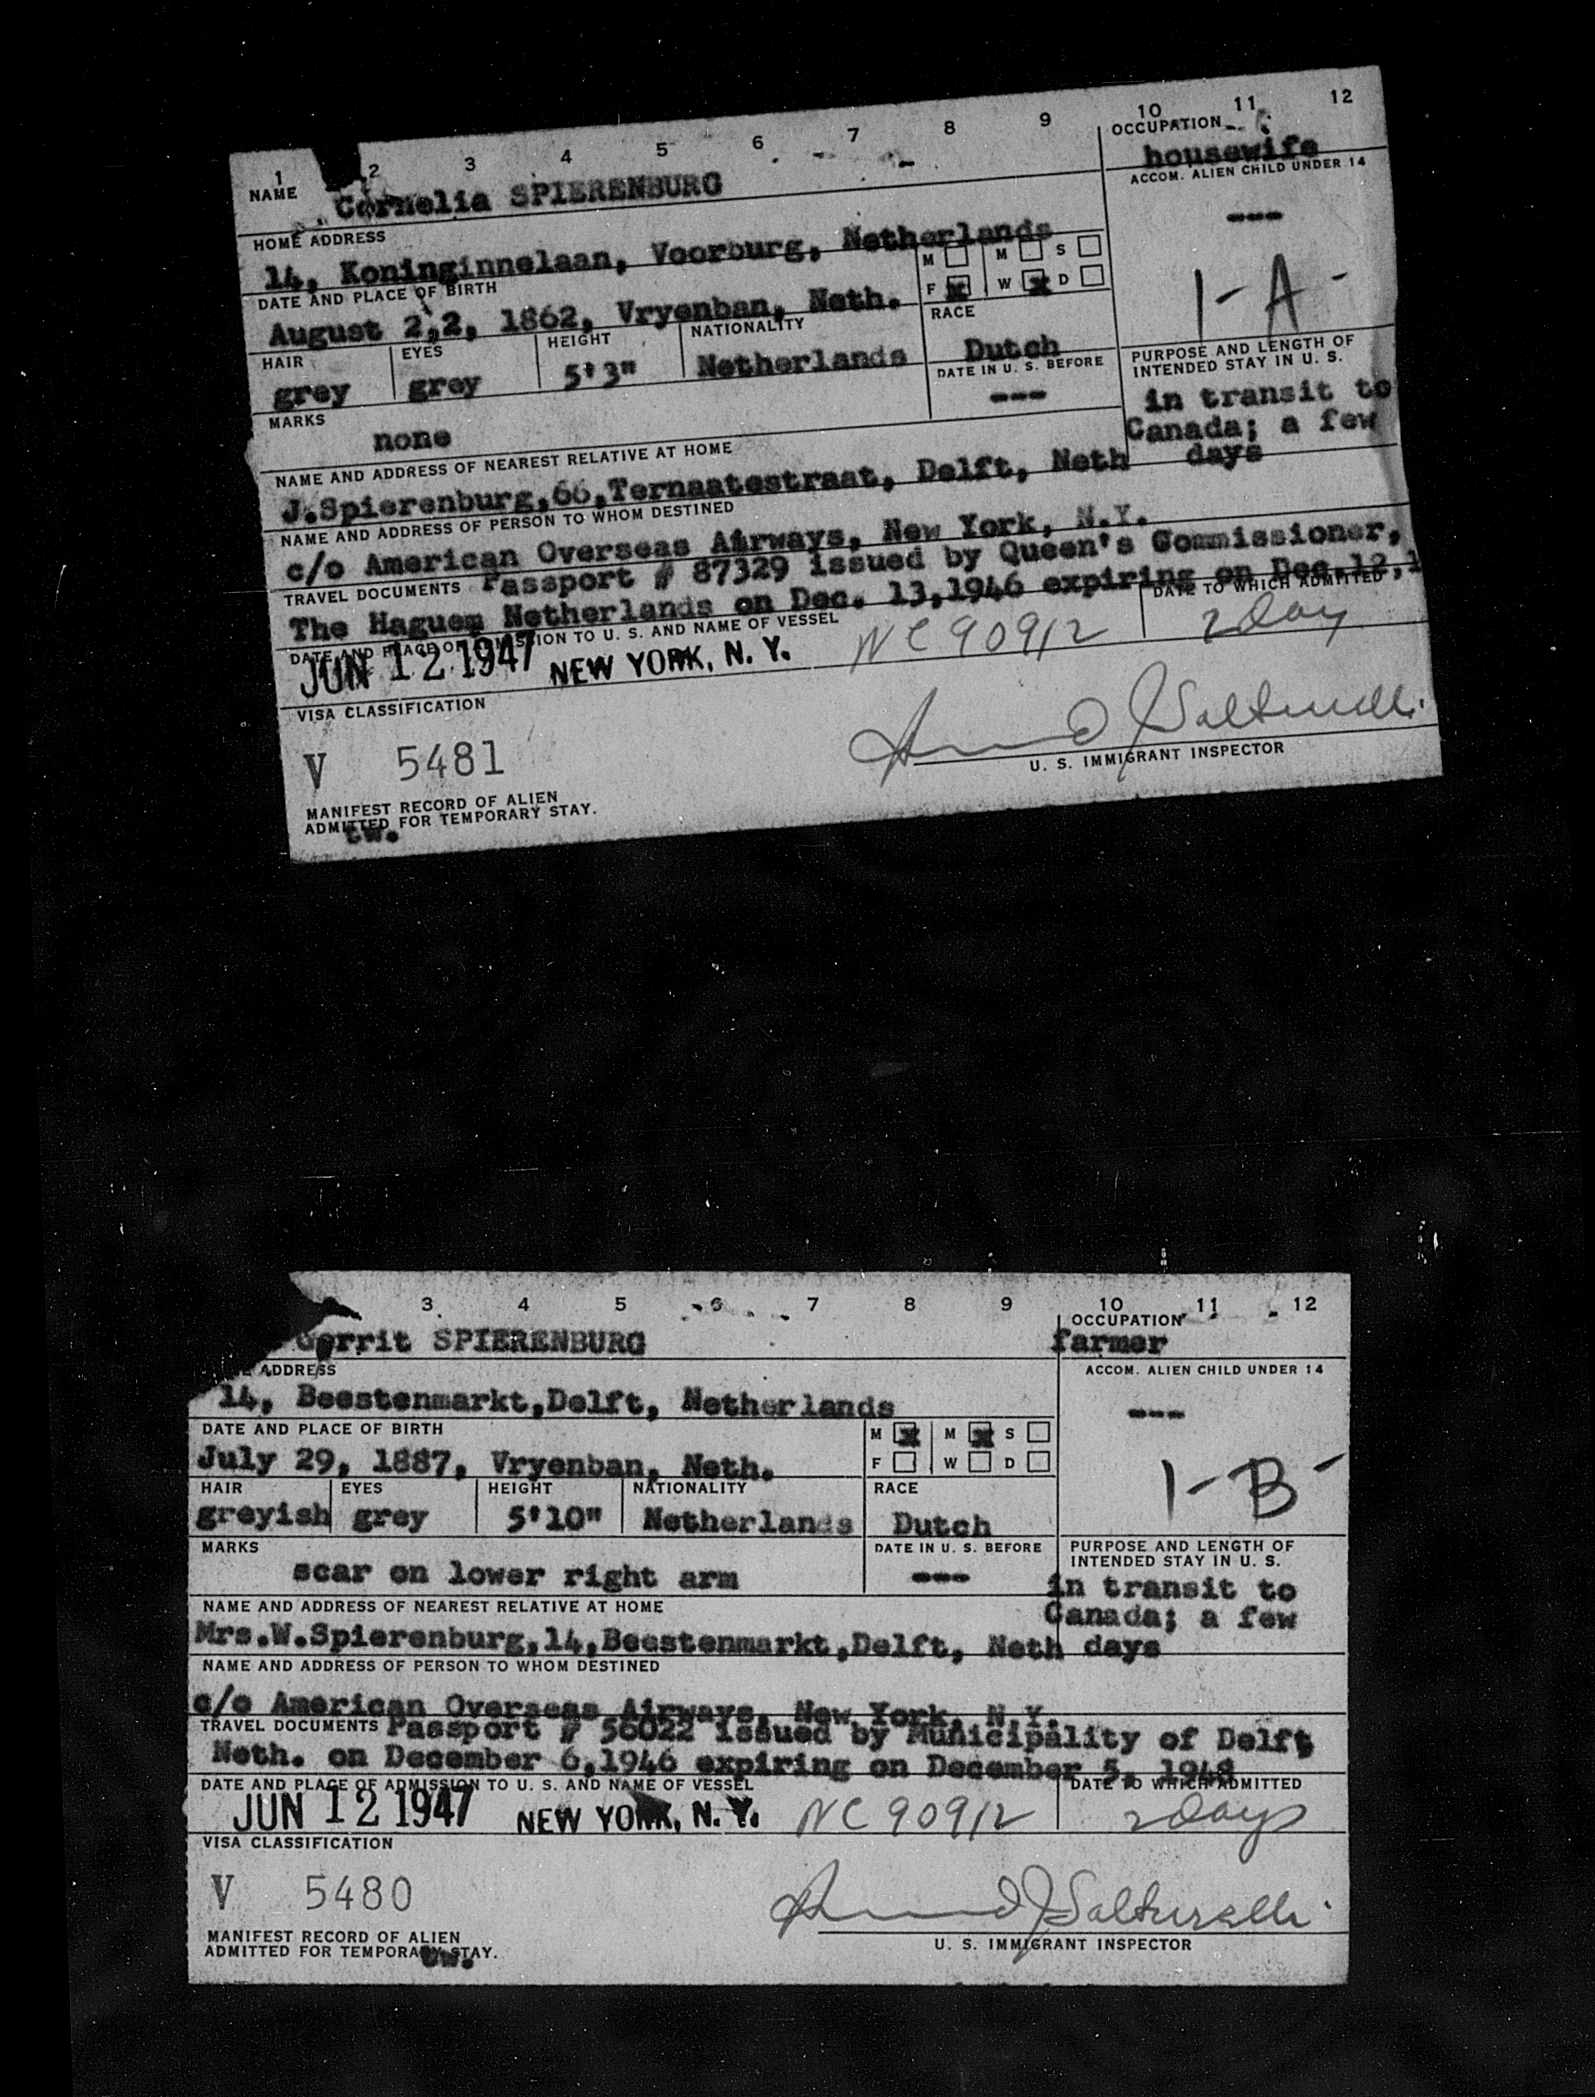 1 2 3 4 5 6 7 8 9 10 11 12
NAME Cornelia SPIERENBURG
OCCUPATION
housewife
HOME ADDRESS
14, Koninginnelaan, Voorburg, Netherlands
ACCOM. ALIEN CHILD UNDER 14
---
1-A-
DATE AND PLACE OF BIRTH
August 2,2, 1862, Vryenban, Neth.
M M S
F x W x D
HAIR EYES HEIGHT NATIONALITY RACE
grey grey 5'3" Netherlands Dutch
MARKS
none
DATE IN U. S. BEFORE
---
PURPOSE AND LENGTH OF
INTENDED STAY IN U. S.
in transit to
Canada; a few
days
NAME AND ADDRESS OF NEAREST RELATIVE AT HOME
J.Spierenburg,66,Ternaatestraat, Delft, Neth
NAME AND ADDRESS OF PERSON TO WHOM DESTINED
c/o American Overseas Airways, New York, N.Y.
TRAVEL DOCUMENTS Passport # 87329 issued by Queen's Commissioner,
The Haguem Netherlands on Dec. 13,1946 expiring on Dec.12,1
DATE AND PLACE OF ADMISSION TO U. S. AND NAME OF VESSEL
DATE TO WHICH ADMITTED
JUN 12 1947 NEW YORK, N. Y. NC90912 2 day
VISA CLASSIFICATION
V 5481
U. S. IMMIGRANT INSPECTOR
MANIFEST RECORD OF ALIEN
ADMITTED FOR TEMPORARY STAY.
tw.
3 4 5 6 7 8 9 10 11 12
Gerrit SPIERENBURG
OCCUPATION
farmer
ADDRESS
14, Beestenmarkt,Delft, Netherlands
ACCOM. ALIEN CHILD UNDER 14
---
1-B-
DATE AND PLACE OF BIRTH
July 29, 1887, Vryenban, Neth.
M x M x S
F W D
HAIR EYES HEIGHT NATIONALITY RACE
greyish grey 5'10" Netherlands Dutch
MARKS
scar on lower right arm
DATE IN U. S. BEFORE
---
PURPOSE AND LENGTH OF
INTENDED STAY IN U. S.
in transit to
Canada; a few
days
NAME AND ADDRESS OF NEAREST RELATIVE AT HOME
Mrs.W.Spierenburg,14,Beestenmarkt,Delft, Neth
NAME AND ADDRESS OF PERSON TO WHOM DESTINED
c/o American Overseas Airways, New York, N.Y.
TRAVEL DOCUMENTS Passport # 56022 issued by Municipality of Delft
Neth. on December 6,1946 expiring on December 5, 1948
DATE AND PLACE OF ADMISSION TO U. S. AND NAME OF VESSEL
DATE TO WHICH ADMITTED
JUN 12 1947 NEW YORK, N. Y. NC90912 2 days
VISA CLASSIFICATION
V 5480
U. S. IMMIGRANT INSPECTOR
MANIFEST RECORD OF ALIEN
ADMITTED FOR TEMPORARY STAY.
tw.